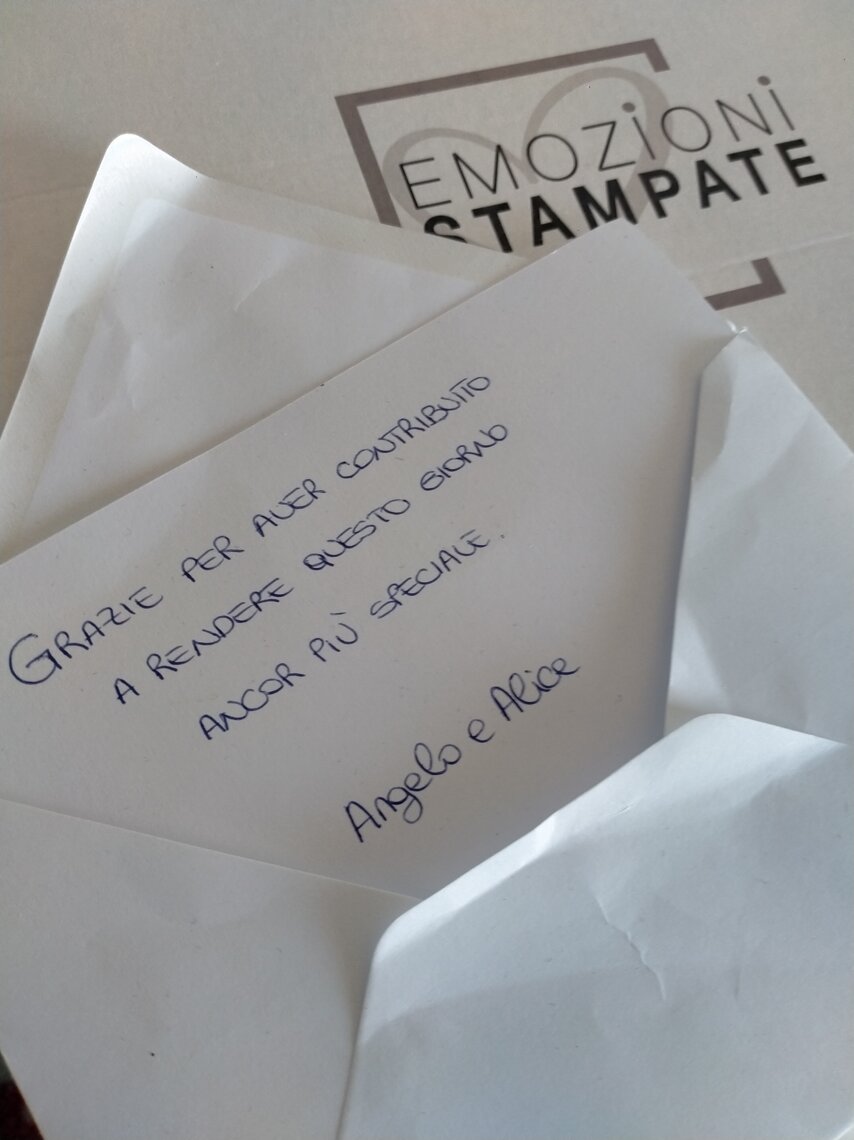 EMOZiONi
STAMPATE
GRAZIE PER AVER CONTRIBUITO
A RENDERE QUESTO GIORNO
ANCOR PIÙ SPECIALE.
Angelo e Alice